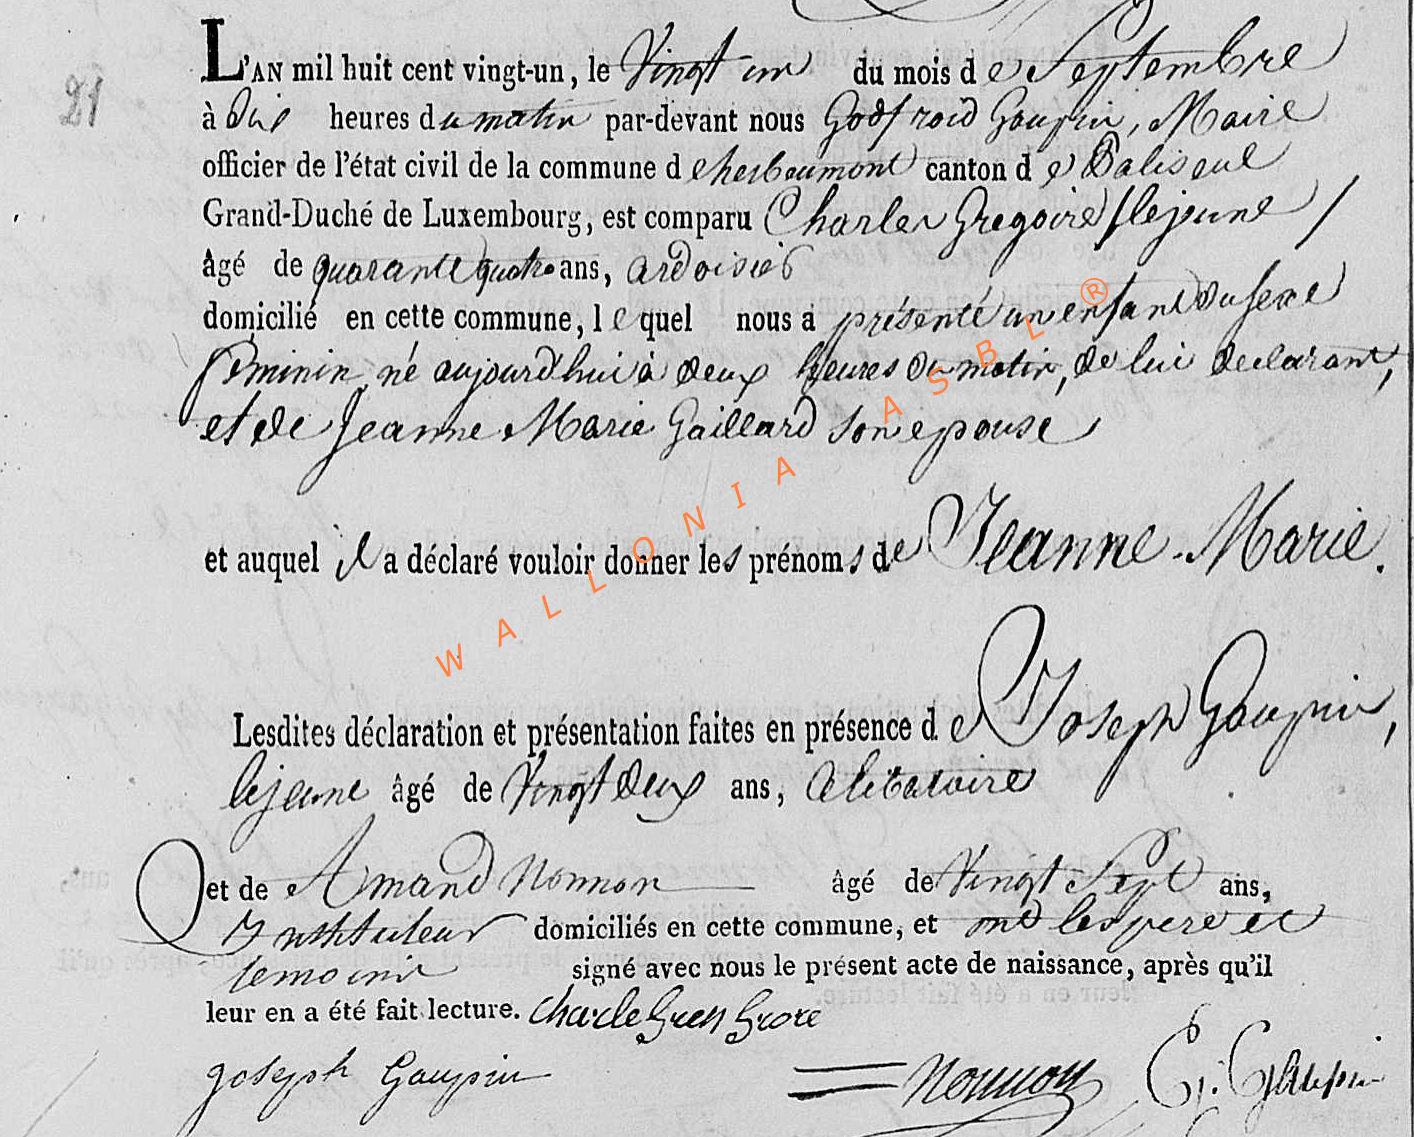 21
L'AN mil huit cent vingt-un, le Vingt un du mois de Septembre
à Dix heures du matin par-devant nous Godfroid Goupin, Maire
officier de l'état civil de la commune d'herbeumont canton de Paliseul
Grand-Duché de Luxembourg, est comparu Charles Gregoire / lejeune /
âgé de quarante quatre ans, ardoisier
domicilié en cette commune, lequel nous a présenté un enfant du sexe
feminin, né aujourd'hui à deux heures du matin, de lui declarant,
et de Jeanne Marie Gaillard son epouse
et auquel il a déclaré vouloir donner les prénoms de Jeanne-Marie.
Lesdites déclaration et présentation faites en présence de Joseph Goupin,
lejeune âgé de Vingt deux ans, Celibataire
et de Armand Nonnon âgé de Vingt Sept ans,
Instituteur domiciliés en cette commune, et ont les pere et
temoins signé avec nous le présent acte de naissance, après qu'il
leur en a été fait lecture. Charle Gree Gore
Joseph Goupin
Nonnon
G. Goupin
WALLONIA ASBL ®